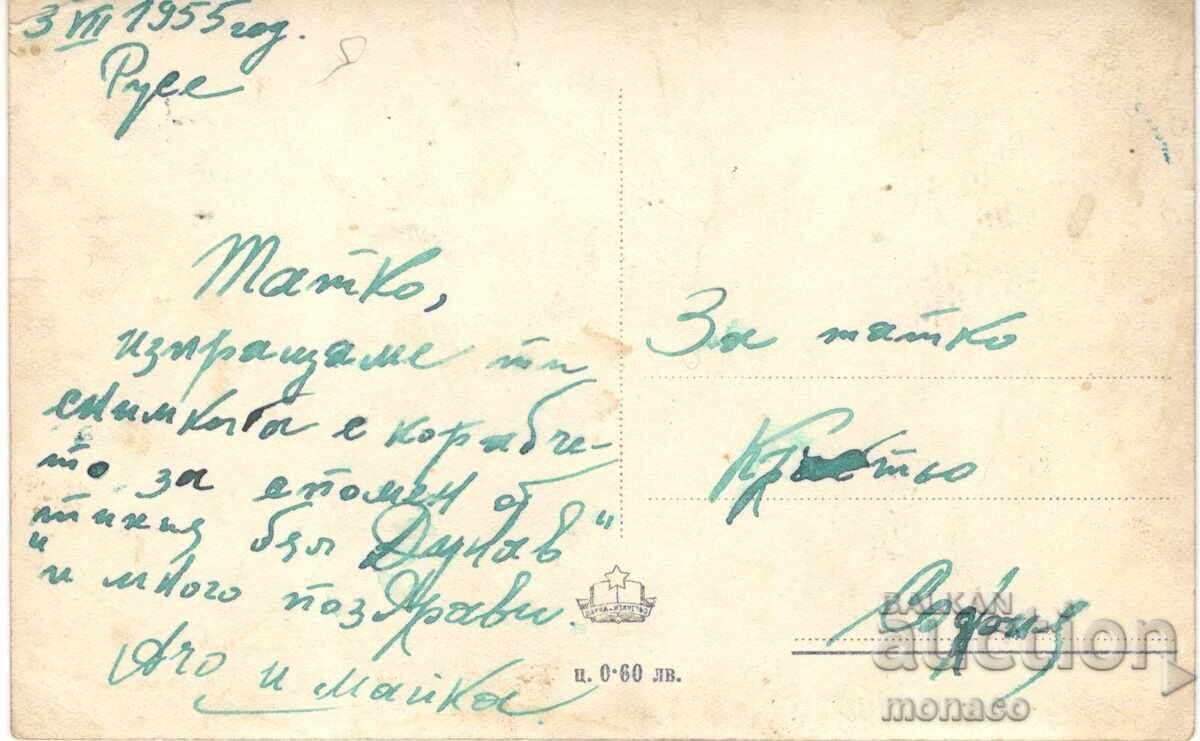 3 VIII 1955 год.
Русе
Татко,
изпращаме ти
снимката с корабче-
то за спомен от
тихия бял Дунав"
"и много поздрави.
Ачо и майка.
За татко
Кръстьо
София
ц. 0·60 лв.
BALKAN
auction
monaco